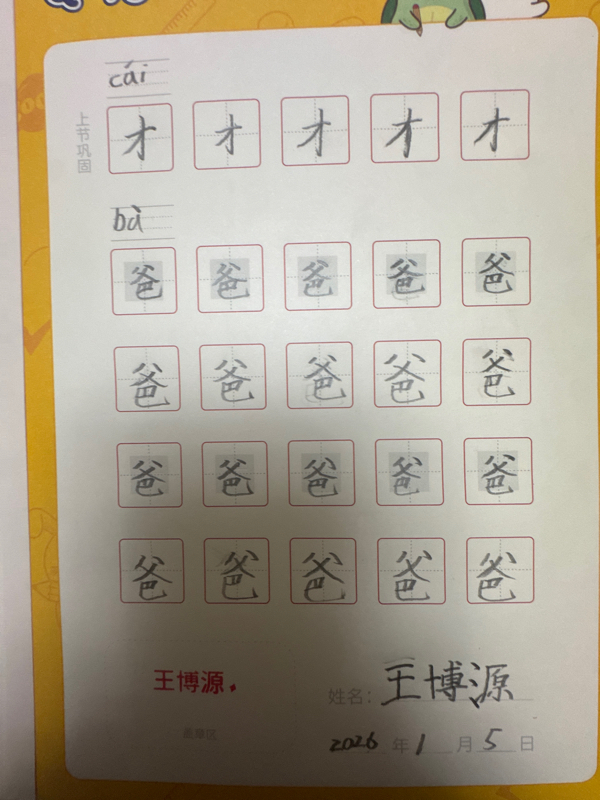 cái
上节巩固
才 才 才 才 才
bà
爸 爸 爸 爸 爸
爸 爸 爸 爸 爸
爸 爸 爸 爸 爸
爸 爸 爸 爸 爸
王博源
姓名: 王博源
2026 年 1 月 5 日